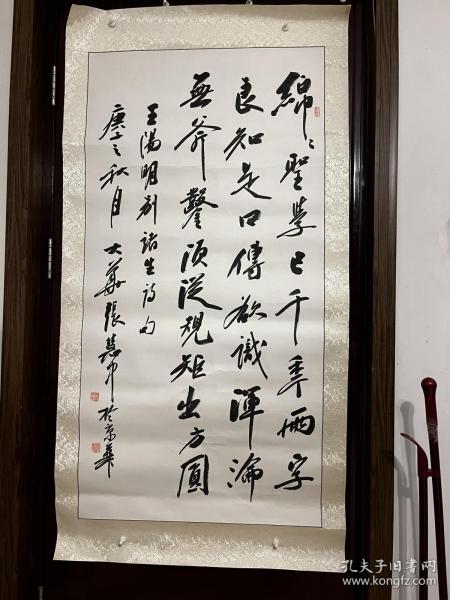 綿〻聖學已千季兩字
良知是口傳欲識渾淪
無斧鑿須從規矩出方圓
王陽明別諸生詩句
庚子之秋月大華張慧中於京華
孔夫子旧书网
www.kongfz.com